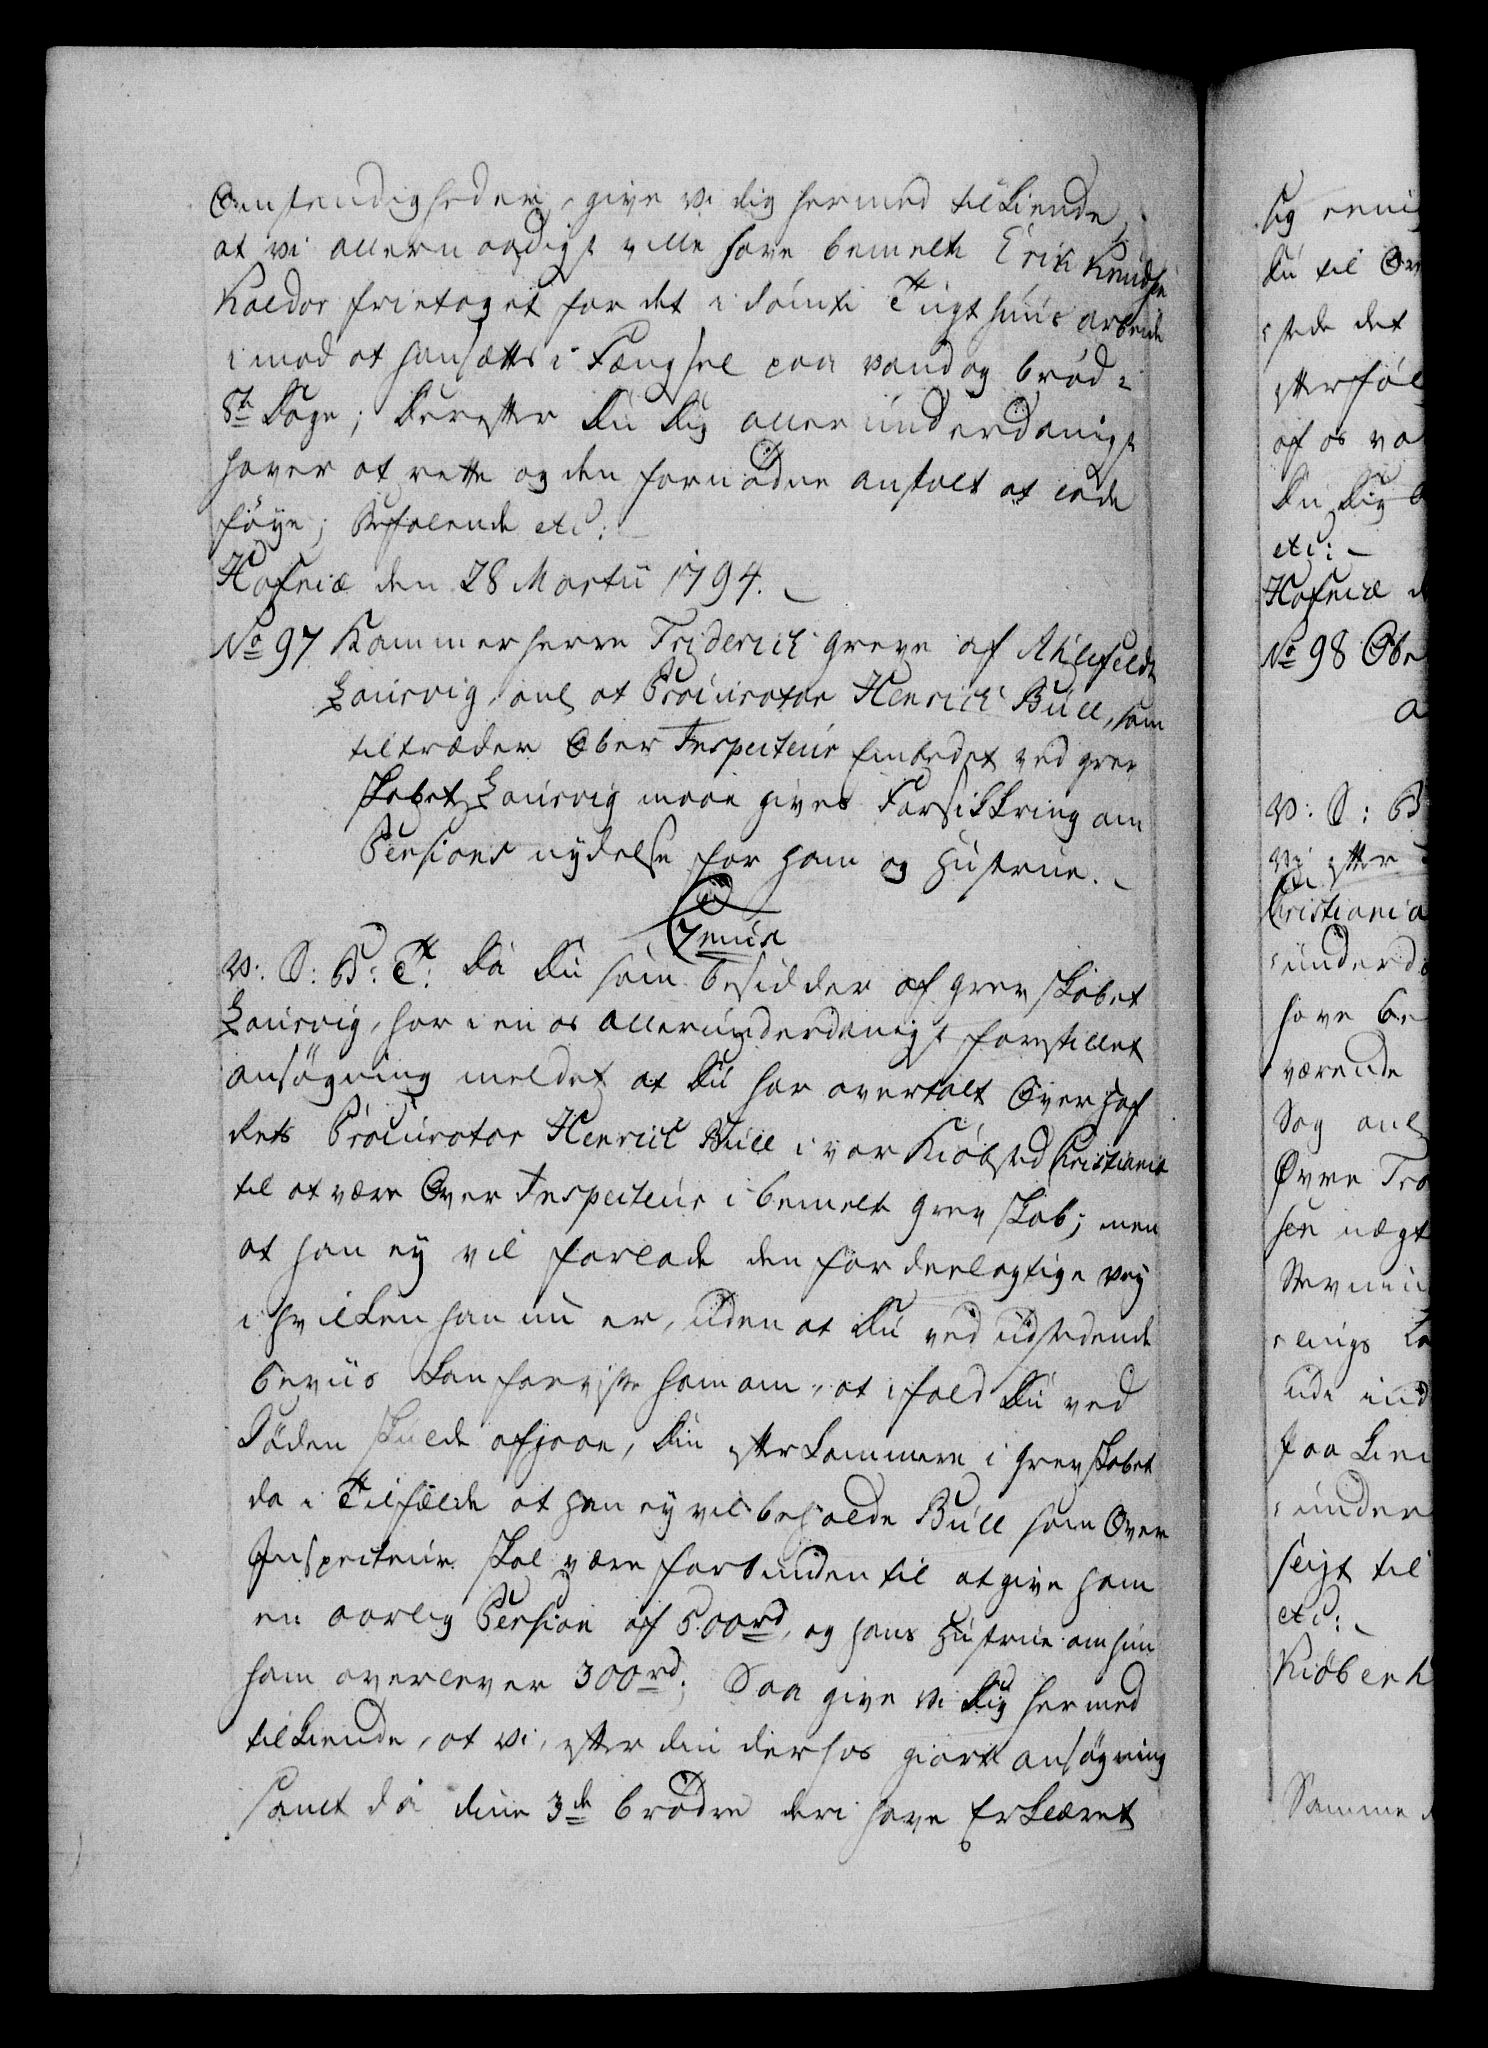 Omstendigheder, give vi dig hermed tilkiende,
at vi allernaadigst ville have bemelte Erik Knudsen
Kaldor frietaget for det idømte Tugthuus arbeide
imod at hensættes i Fængsel paa vand og brød i
8te Dage; Derefter Du Dig allerunderdanigst
haver at rette og den fornødne anstalt at lade
føye; Befalende etc:
Hafniæ den 28 Martii 1794.
No 97 Kammerherre Friderich Greve af Ahlefeldt
Laurvig, anl at Procurator Henrich Bull, som
tiltræder Ober Inspecteur Embedet ved grev
skabet Laurvig maae gives Forsikkring om
Pensions nydelse for ham og Hustrue.
V: S: B: T: Da Du som besidder af grevskabet
Laurvig, har i en os allerunderdanigst forestillet
ansøgning meldet at Du har overtalt Overhof
Rets Procurator Henrich Bull i vor Kiøbsted Christiania
til at være Over Inspecteur i bemelte grevskab; men
at han ey vil forlade den fordeelagtige vey
i hvilken han nu er, uden at Du ved udstedende
beviis kan forvisse ham om, at ifald Du ved
Døden skulde afgaae, Din efterkommere i grevskabet
da i Tilfælde at han ey vil beholde Bull som Over
Inspecteur skal være forbunden til at give ham
en aarlig Pension af 500rd, og hans Hustrue om hun
ham overlever 300rd; Saa give vi Dig hermed
tilkiende, at vi, efter din derhos giorte ansøgning
samt da dine 3de brødre deri have Erklæret
Sig eenig
Du til Ov
stede det
efterføl
af os va
Du Dig
etc:
Hafniæ d
No 98 Obe
a
V: S: B
vi efter
Christiania
underd
have be
værende
Sag anl
Øvre Tro
sen nægt
Stevnin
lings La
ude ind
paa Lin
under
seigt til
etc:
Kiøbenh
Samme